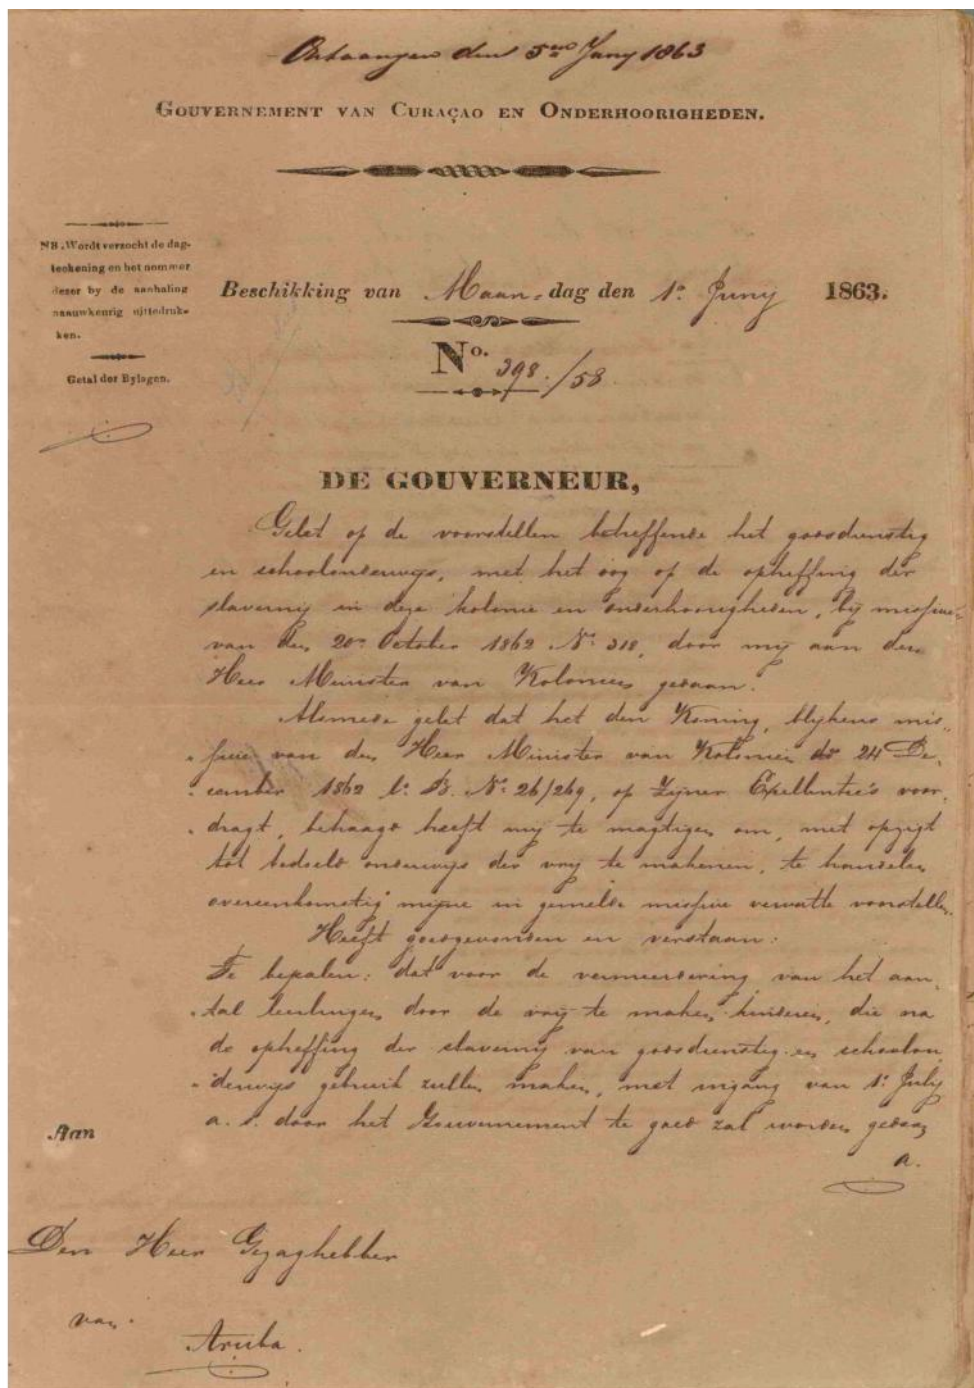 Ontvangen den 5en Juny 1863
GOUVERNEMENT VAN CURAÇAO EN ONDERHOORIGHEDEN.
NB. Wordt verzocht de dag-
teekening en het nommer
dezer by de aanhaling
naauwkeurig uittedruk-
ken.
Getal der Bylagen.
Beschikking van Maan-dag den 1n Juny 1863.
No. 398./58
DE GOUVERNEUR,
Gelet op de voorstellen betreffende het godsdienstig
en schoolonderwijs, met het oog op de opheffing der
slavernij in deze kolonie en onderhoorigheden, bij missive
van den 20en October 1862 No 318, door mij aan den
Heer Minister van Koloniën gedaan.
Alsmede gelet dat het den Koning, blijkens mis-
sive van den Heer Minister van Koloniën dd 24 De-
cember 1862 La B. No 26/269, op Zijner Excellentie's voor-
dragt, behaagd heeft mij te magtigen om, met opzigt
tot bedoeld onderwijs der vrij te makenen, te handelen
overeenkomstig mijne in gemelde missive vervatte voorstellen.
Heeft goedgevonden en verstaan:
Te bepalen: dat voor de vermeerdering van het aan-
tal leerlingen door de vrij te maken kinderen, die na
de opheffing der slavernij van godsdienstig en schoolon-
derwijs gebruik zullen maken, met ingang van 1n July
a. s. door het Gouvernement te goed zal worden gedaan
a.
Aan
Den Heer Gezaghebber
van
Aruba.